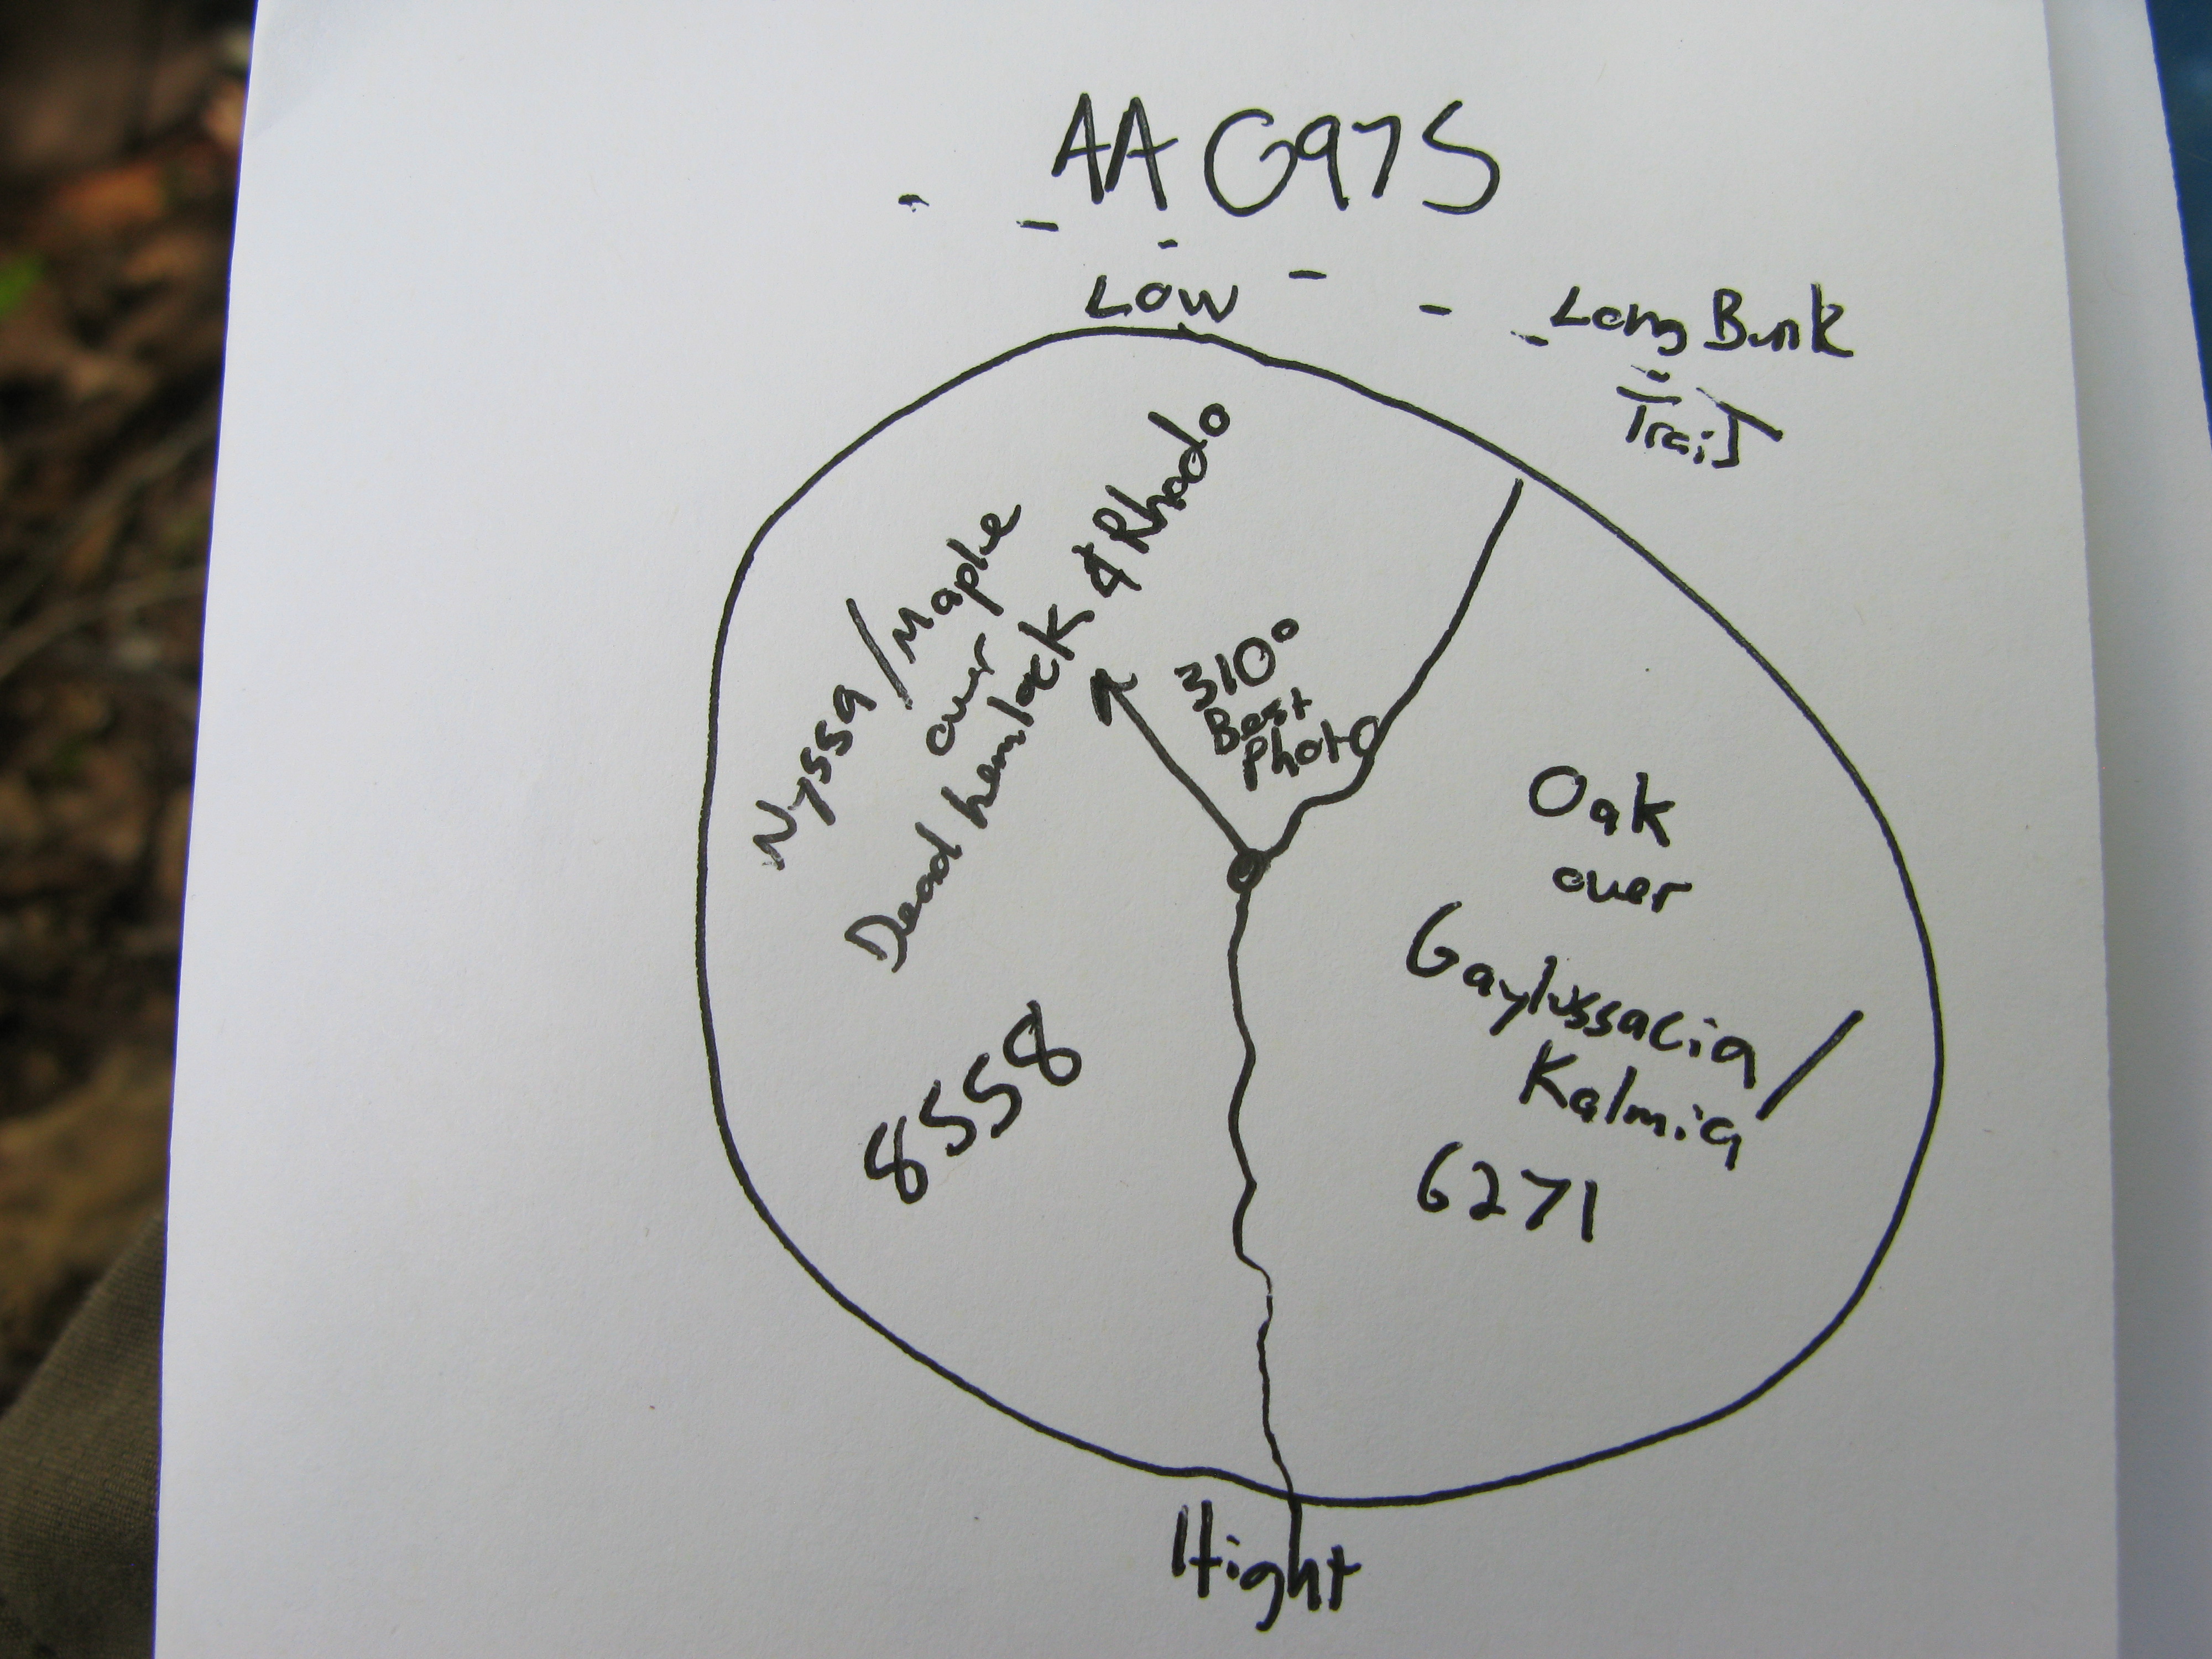 AA G97S
Low
Long Bunk
Trail
Nyssa/Maple
over
Dead hemlock & Rhodo
310°
Best
Photo
Oak
over
Gaylussacia/
Kalmia
8558
6271
Hight